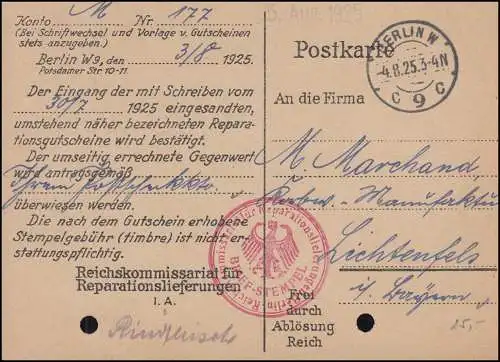 Konto M Nr. 177
(Bei Schriftwechsel und Vorlage v. Gutscheinen
stets anzugeben.)
Berlin W 9, den 3/8 1925.
Potsdamer Str. 10-11.
Der Eingang der mit Schreiben vom
30/7 1925 eingesandten,
umstehend näher bezeichneten Repara-
tionsgutscheine wird bestätigt.
Der umseitig errechnete Gegenwert
wird antragsgemäß
Ihrem Postscheckkto.
überwiesen werden.
Die nach dem Gutschein erhobene
Stempelgebühr (timbre) ist nicht er-
stattungspflichtig.
Reichskommissariat für
Reparationslieferungen
I. A.
5. Aug. 1925
Postkarte
BERLIN W
-4.8.25.3-4N
C 9 C
An die Firma
M Marchand
Korbw.-Manufaktur
Lichtenfels
i/ Bayern
BRIEF-STEMPEL
Frei
durch
Ablösung
Reich
25,-